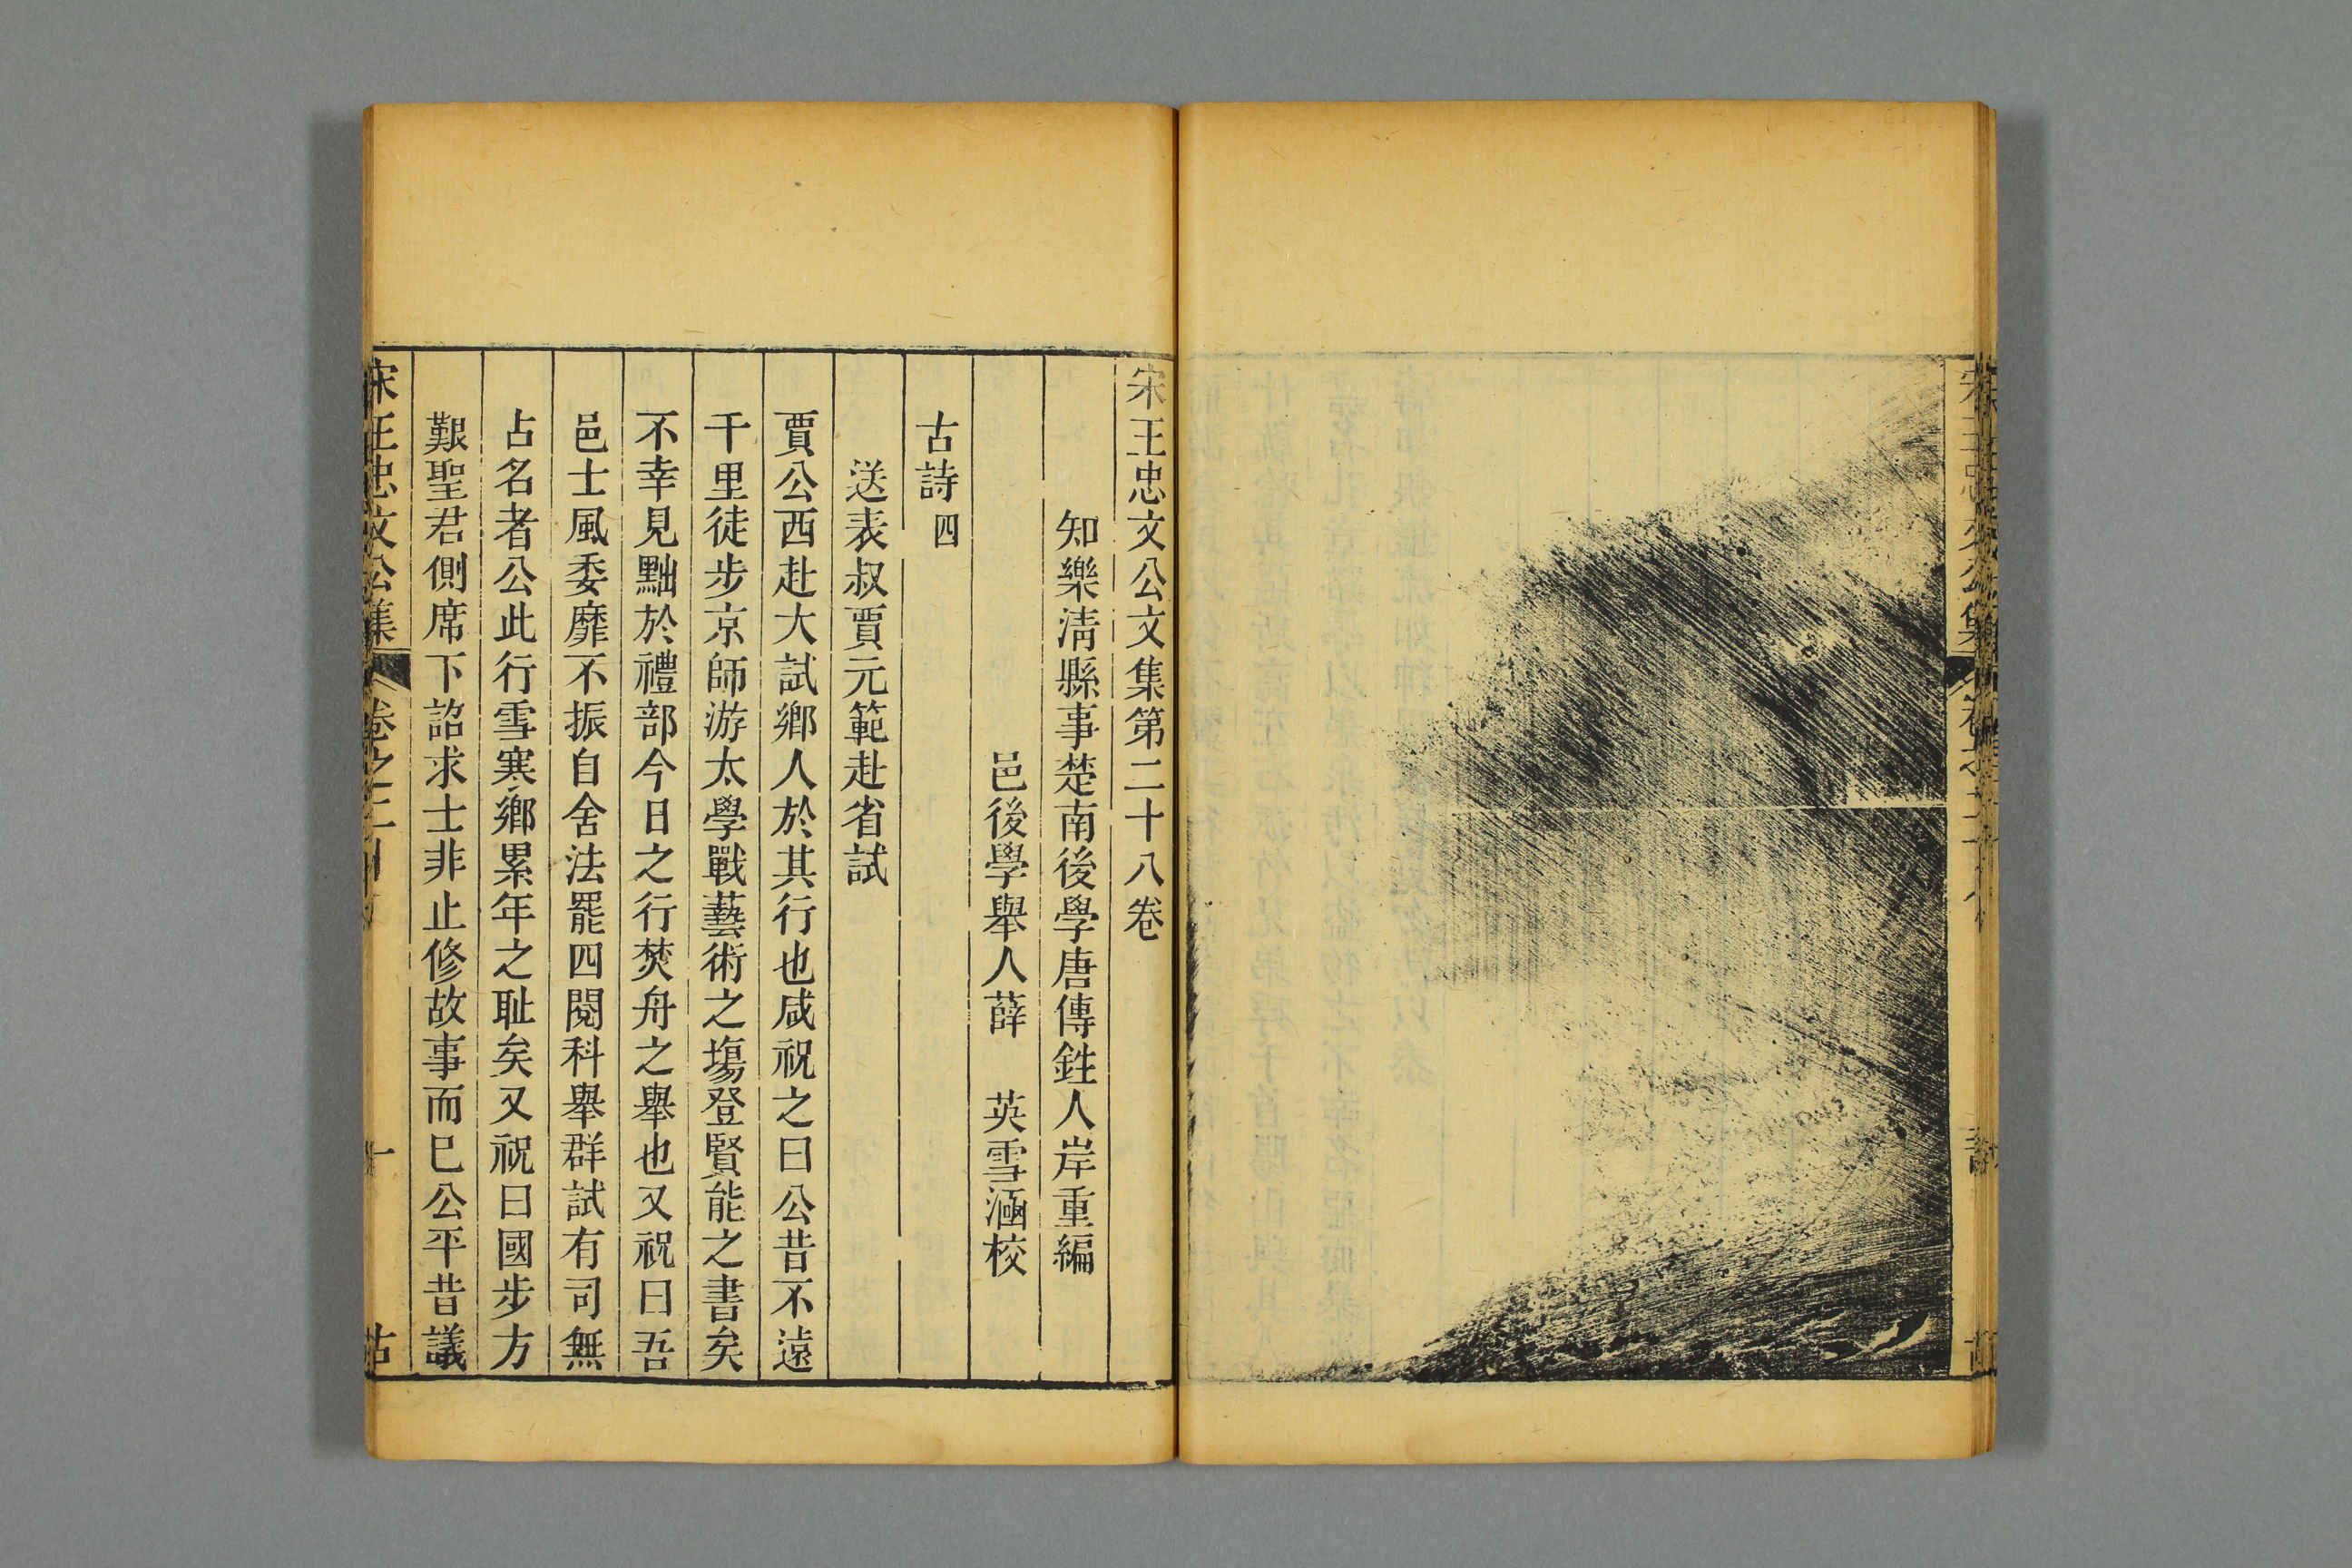 宋王忠文公文集第二十八卷
知樂清縣事楚南後學唐傳鉎人岸重編
邑後學舉人薛　英雪涵校
古詩四
送表叔賈元範赴省試
賈公西赴大試鄉人於其行也咸祝之曰公昔不遠
千里徒步京師游太學戰藝術之塲登賢能之書矣
不幸見黜於禮部今日之行焚舟之舉也又祝曰吾
邑士風委靡不振自舍法罷四閱科舉群試有司無
占名者公此行雪寒鄉累年之耻矣又祝曰國步方
艱聖君側席下詔求士非止修故事而巳公平昔議
宋王忠文公集
卷之二